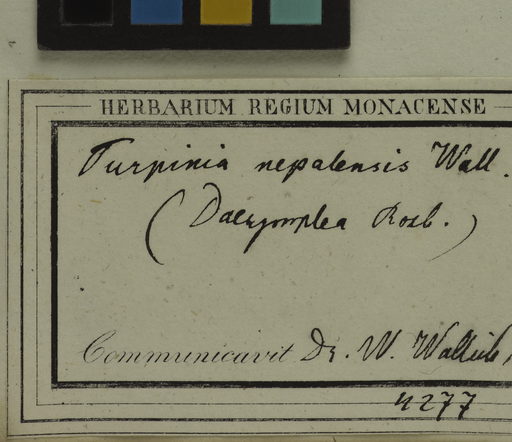 HERBARIUM REGIUM MONACENSE
Turpinia nepalensis Wall.
(Dalrymplea Roxb.)
Communicavit Dr. W. Wallich
4277